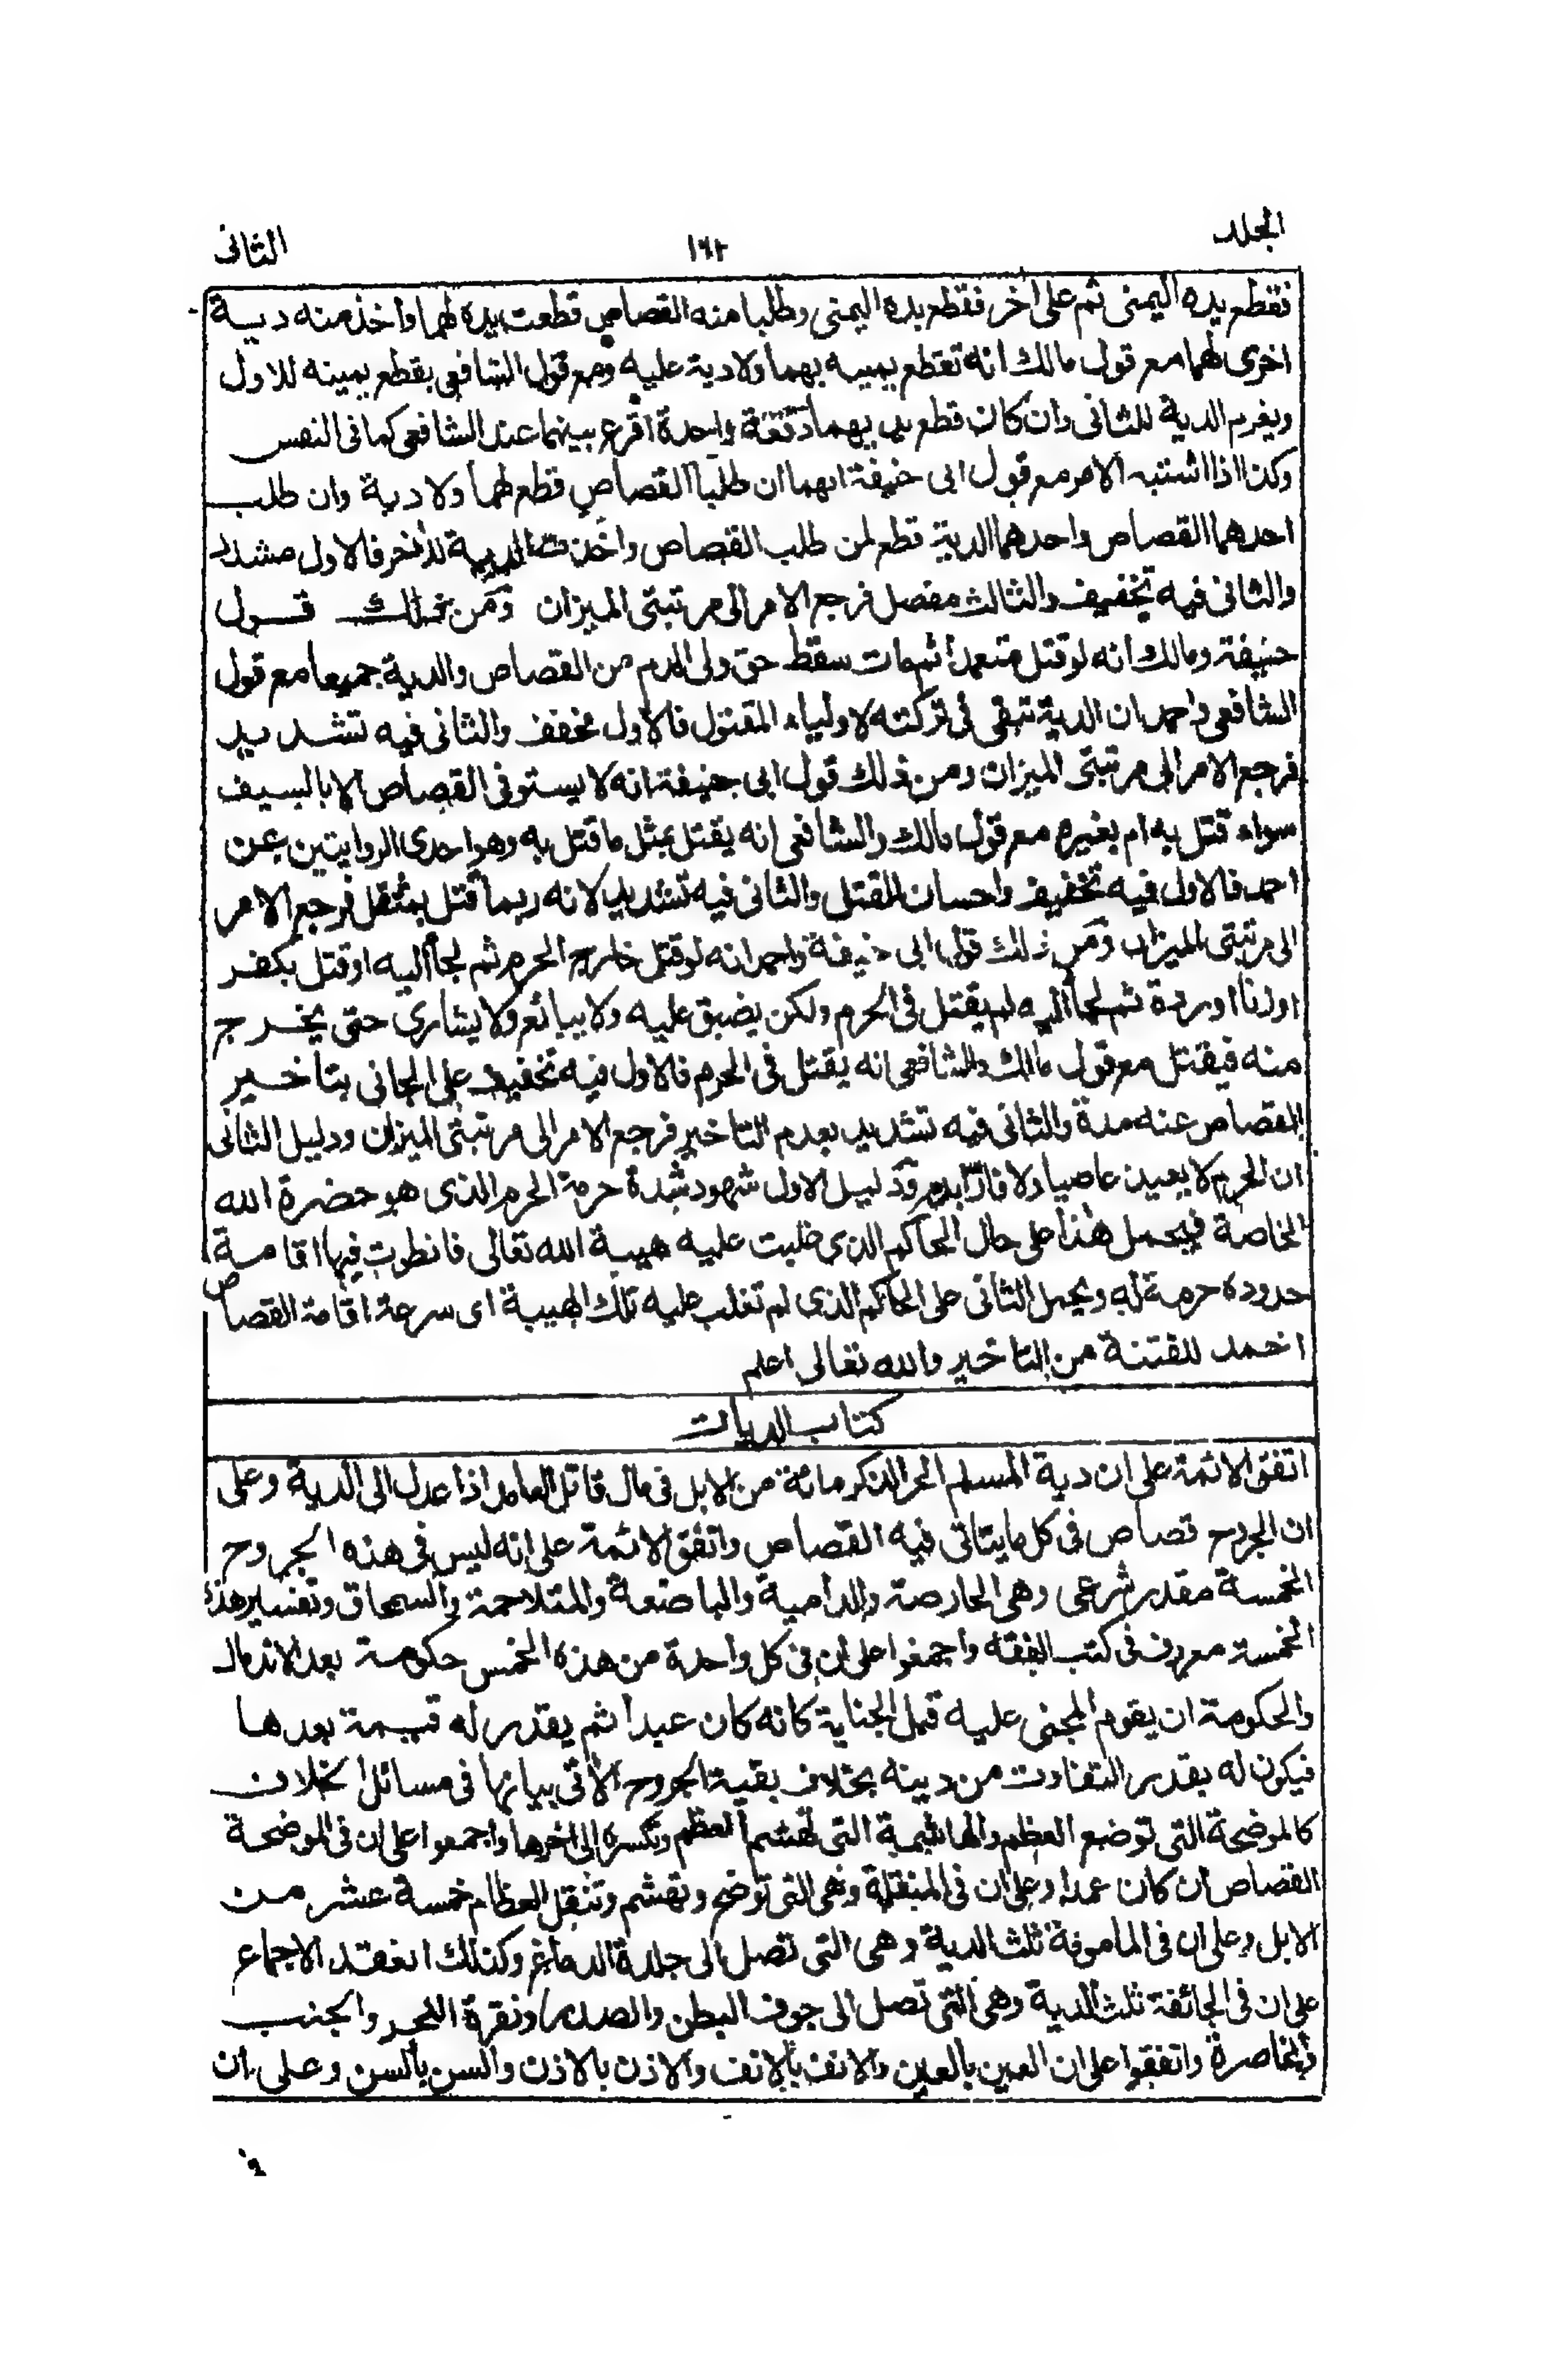 المجلد
١٦٢
الثانى
فقطع يده اليمنى ثم على اخر فقطع يده اليمنى وطلبا منه القصاص قطعت يده لهما واخذ منه دية
اخرى لهما مع قول مالك انه تقطع يمينه بهما ولا دية عليه ومع قول الشافعى يقطع يمينه للاول
ويغرم الدية للثانى وان كان قطع يديهما دفعة واحدة اقرع بينهما عند الشافعى كما فى النفس
وكذا اذا اشتبه الامر مع قول ابى حنيفة انهما ان طلبا القصاص قطع لهما ولا دية وان طلب
احدهما القصاص واحدهما الدية قطع لمن طلب القصاص واخذت الدية للأخر فالاول مشدد
والثانى فيه تخفيف والثالث مفصل فرجع الامر الى مرتبتى الميزان ومن ذلك قول
حنيفة ومالك انه لو قتل متعمدا ثم مات سقط حق ولى الدم من القصاص والدية جميعا مع قول
الشافعى واحمد ان الدية تبقى فى تركته لاولياء المقتول فالاول مخفف والثانى فيه تشديد
فرجع الامر الى مرتبتى الميزان ومن ذلك قول ابى حنيفة انه لا يستوفى القصاص الا بالسيف
سواء قتل به ام بغيره مع قول مالك والشافعى انه يقتل بمثل ما قتل به وهو احدى الروايتين عن
احمد فالاول فيه تخفيف واحسان للقتل والثانى فيه تشديد لانه ربما قتل بمثقل فرجع الامر
الى مرتبتى الميزان ومن ذلك قول ابى حنيفة واحمد انه لو قتل خارج الحرم ثم لجأ اليه او قتل بكفر
او زنا او ردة ثم لجأ اليه لم يقتل فى الحرم ولكن يضيق عليه ولا يبائع ولا يشارى حتى يخرج
منه فيقتل مع قول مالك والشافعى انه يقتل فى الحرم فالاول فيه تخفيف على الجانى بتاخير
القصاص عنه مدة والثانى فيه تشديد بعدم التاخير فرجع الامر الى مرتبتى الميزان ودليل الثانى
ان الحرم لا يعيذ عاصيا ولا فارّا بدم ودليل الاول شهود شدة حرمة الحرم الذى هو حضرة الله
الخاصة فيحمل هذا على حال الحاكم الذى غلبت عليه هيبة الله تعالى فانطوت فيها اقامة
حدوده حرمة له ويحمل الثانى على الحاكم الذى لم تغلب عليه تلك الهيبة اى سرعة اقامة القصاص
اخمد للفتنة من التاخير والله تعالى اعلم
كتاب الديات
اتفق الائمة على ان دية المسلم الحر الذكر مائة من الابل فى مال قاتل العامد اذا عدل الى الدية وعلى
ان الجروح قصاص فى كل ما يتاتى فيه القصاص واتفق الائمة على انه ليس فى هذه الجروح
الخمسة مقدر شرعى وهى الحارصة والدامية والباضعة والمتلاحمة والسمحاق وتفسير هذه
الخمسة معروف فى كتب الفقه واجمعوا على ان فى كل واحدة من هذه الخمس حكومة بعد الاندمال
والحكومة ان يقوم المجنى عليه قبل الجناية كانه كان عبدا ثم يقدر له قيمة بعدها
فيكون له بقدر التفاوت من دينه بخلاف بقية الجروح الآتى بيانها فى مسائل الخلاف
كالموضحة التى توضع العظم والهاشمية التى تهشم العظم وتكسره الى اخرها واجمعوا على ان فى الموضحة
القصاص ان كان عمدا وعلى ان فى المنقلة وهى التى توضح وتهشم وتنقل العظام خمسة عشر من
الابل وعلى ان فى المامومة ثلث الدية وهى التى تصل الى جلدة الدماغ وكذلك انعقد الاجماع
على ان فى الجائفة ثلث الدية وهى التى تصل الى جوف البطن والصدر ونقرة النحر والجنب
والخاصرة واتفقوا على ان العين بالعين والانف بالانف والاذن بالاذن والسن بالسن وعلى ان